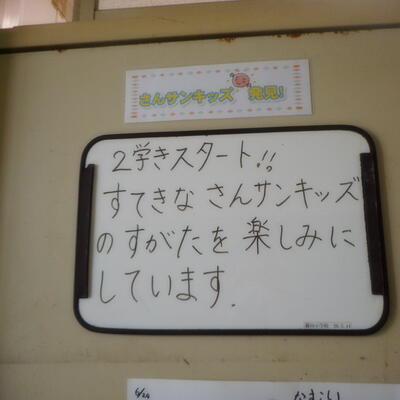 さんサンキッズ 発見!
2学きスタート!!
すてきなさんサンキッズ
のすがたを楽しみに
しています.
6/24